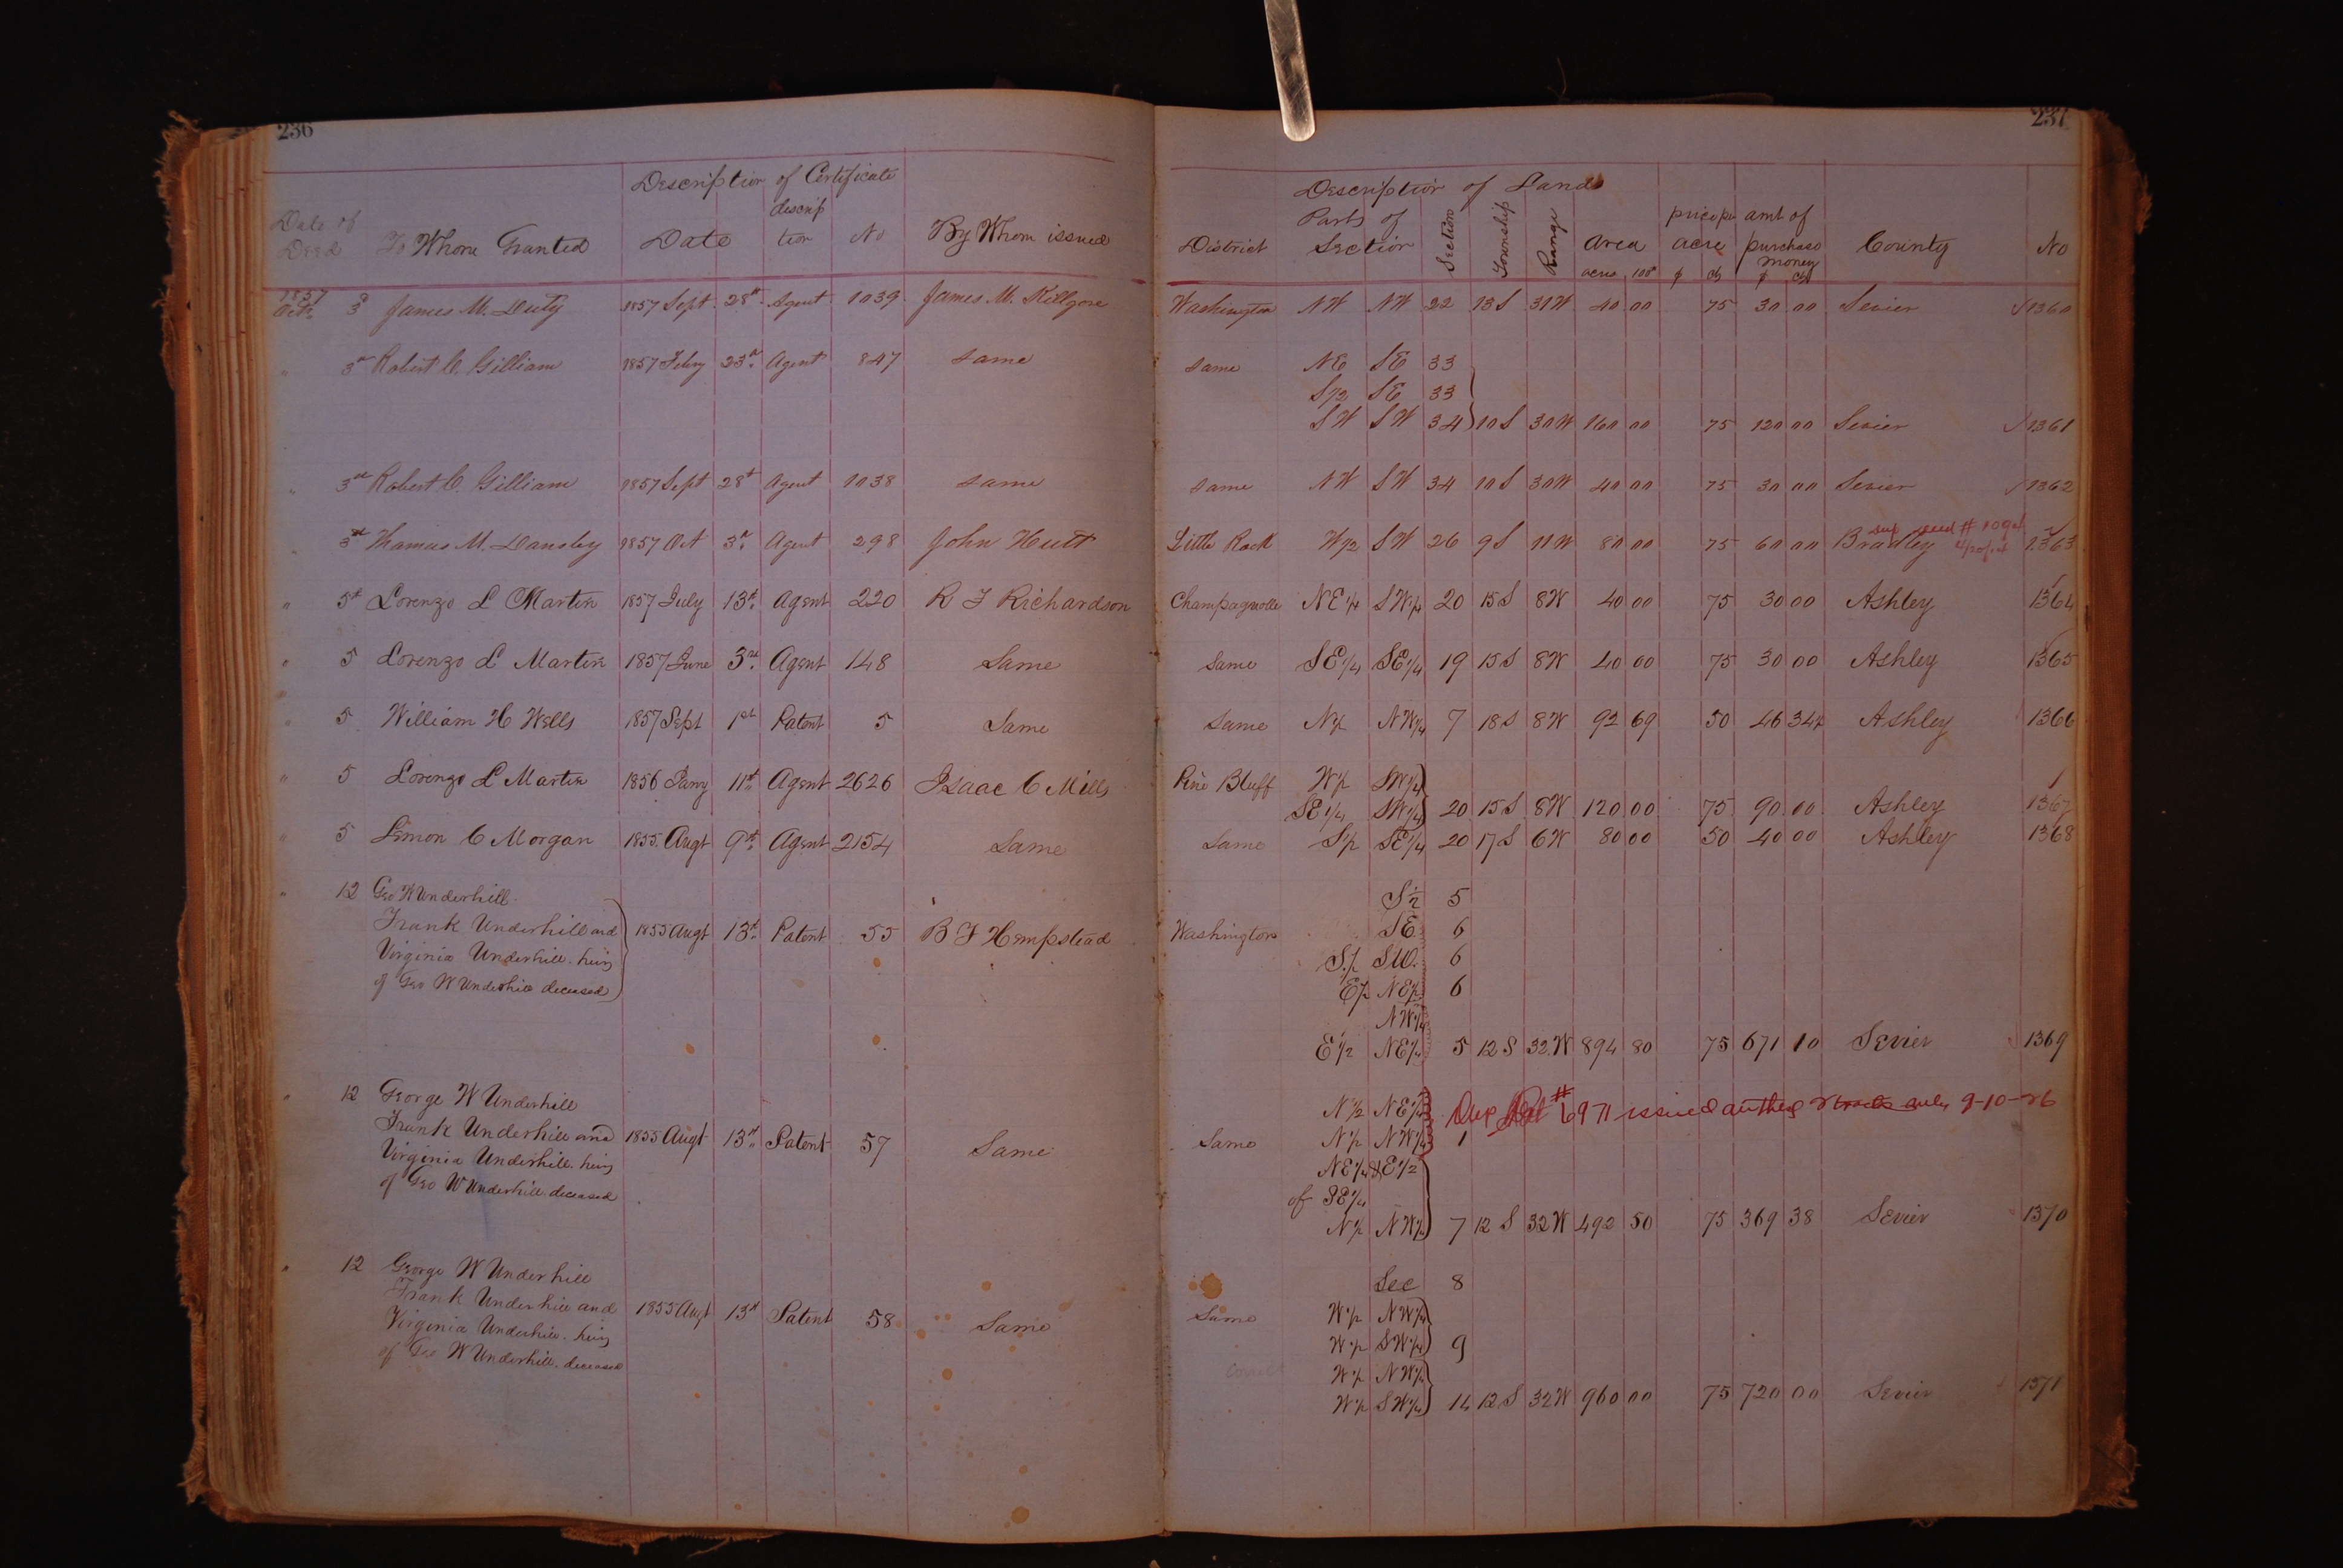 236
Description of Certificate
Date of Deed To Whom Granted Date descrip tion No By Whom issued
1857 Octr 3 James M. Duty 1857 Sept 28th Agent 1039 James M. Killgore
" 3rd Robert C. Gilliam 1857 Feby 23rd Agent 847 same
" 3rd Robert C. Gilliam 1857 Sept 28th Agent 1038 same
" 3rd Thomas M. Dansby 1857 Oct 3rd Agent 298 John Hutt
" 5th Lorenzo L Martin 1857 July 13th Agent 220 R F Richardson
" 5 Lorenzo L Martin 1857 June 3rd Agent 148 Same
" 5 William H Wells 1857 Sept 1st Patent 5 Same
" 5 Lorenzo L Martin 1856 Jany 11th Agent 2626 Isaac C Mills
" 5 Lemon C Morgan 1855 Augt 9th Agent 2154 Same
" 12 Geo W Underhill
Frank Underhill and 1855 Augt 13th Patent 55 B F Hempstead
Virginia Underhill heirs
of Geo W Underhill deceased
" 12 George W Underhill
Frank Underhill and 1855 Augt 13th Patent 57 Same
Virginia Underhill heirs
of Geo W Underhill deceased
" 12 George W Underhill
Frank Underhill and 1855 Augt 13th Patent 58 Same
Virginia Underhill heirs
of Geo W Underhill deceased
237
Description of Land
District Parts of Section Section Township Range Area acres 100s price pr acre $ cts amt of purchase money $ cts County No
Washington NW NW 22 13S 31W 40 00 75 30 00 Sevier 1360
same NE SE 33
S1/2 SE 33
SW SW 34 10S 30W 160 00 75 120 00 Sevier 1361
same NW SW 34 10S 30W 40 00 75 30 00 Sevier 1362
Little Rock W1/2 SW 26 9S 11W 80 00 75 60 00 Bradley 1363
Champagnolle NE1/4 SW1/4 20 15S 8W 40 00 75 30 00 Ashley 1364
Same SE1/4 SE1/4 19 15S 8W 40 00 75 30 00 Ashley 1365
Same N1/2 NW1/4 7 18S 8W 92 69 50 46 34½ Ashley 1366
Pine Bluff W1/2 SW1/4
SE1/4 SW1/4 20 15S 8W 120 00 75 90 00 Ashley 1367
Same S1/2 SE1/4 20 17S 6W 80 00 50 40 00 Ashley 1368
S1/2 5
Washington SE 6
S1/2 SW. 6
E1/2 NE1/4 6
NW1/4
E1/2 NE1/4 5 12S 32W 894 80 75 671 10 Sevier 1369
N1/2 NE1/4 Dup # 6971 issued 9-10-26
Same N1/2 NW1/4 1
NE1/4 & E1/2
of SE1/4
N1/2 NW1/4 7 12S 32W 492 50 75 369 38 Sevier 1370
Sec 8
Same W1/2 NW1/4
W1/2 SW1/4 9
W1/2 NW1/4
W1/2 SW1/4 14 12S 32W 960 00 75 720 00 Sevier 1371